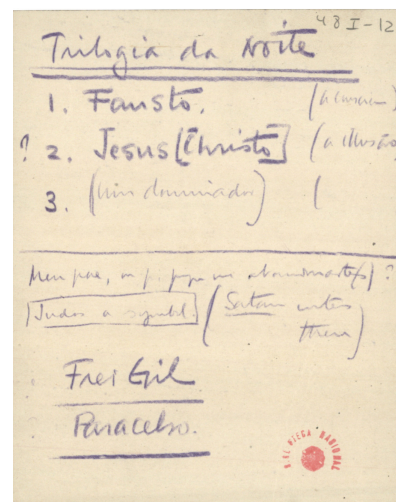 48 I-12
Trilogia da Noite
1. Fausto.
? 2. Jesus [Christo] (a illusão)
3. (um dominador) (
Meu pae, porque me abandonaste(s) ?
Judas a symbol. (Satan writes them)
Frei Gil
Paracelso.
BIBLIOTECA NACIONAL